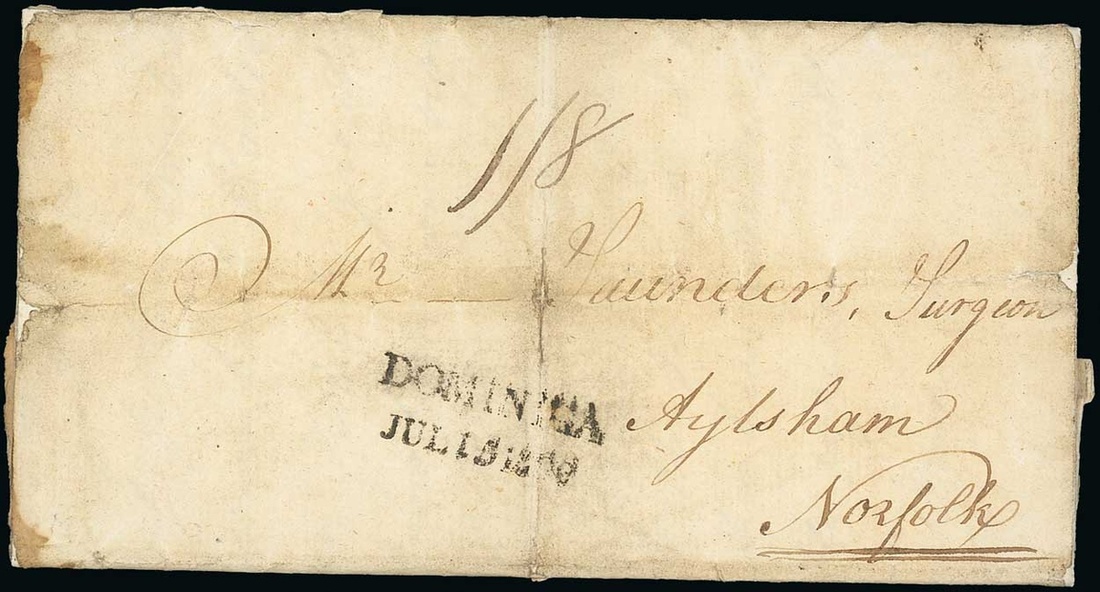 1/8
Mr Saunders, Surgeon
DOMINICA
Aylsham
JUL 15
Norfolk